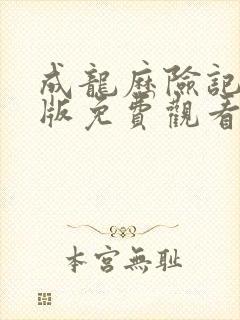 成龍歷險記
版免費觀看
本宮無耻